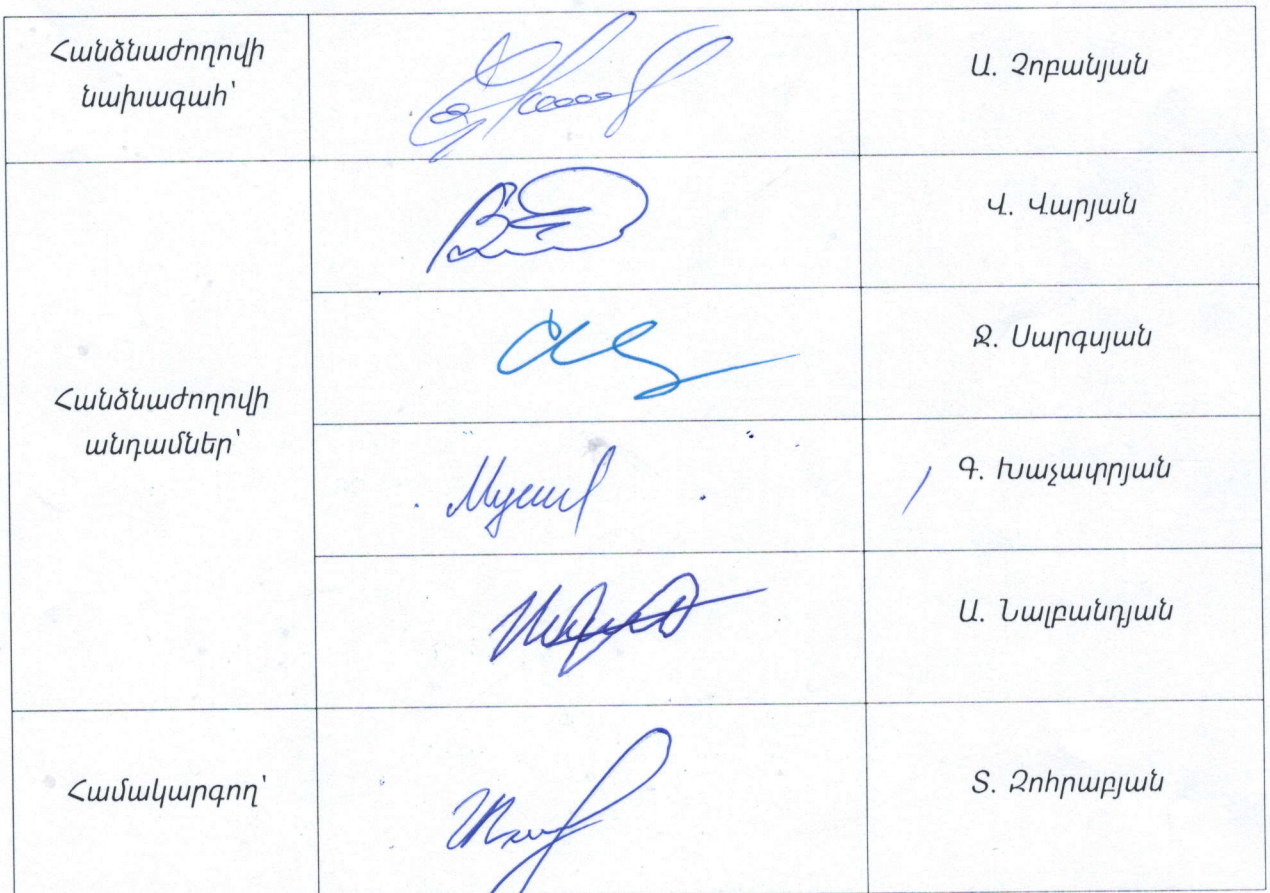 Հանձնաժողովի
նախագահ՝
Ա. Չոբանյան
Վ. Վարյան
Հանձնաժողովի
անդամներ՝
Ջ. Սարգսյան
Գ. Խաչատրյան
Ա. Նալբանդյան
Համակարգող՝
Տ. Զոհրաբյան